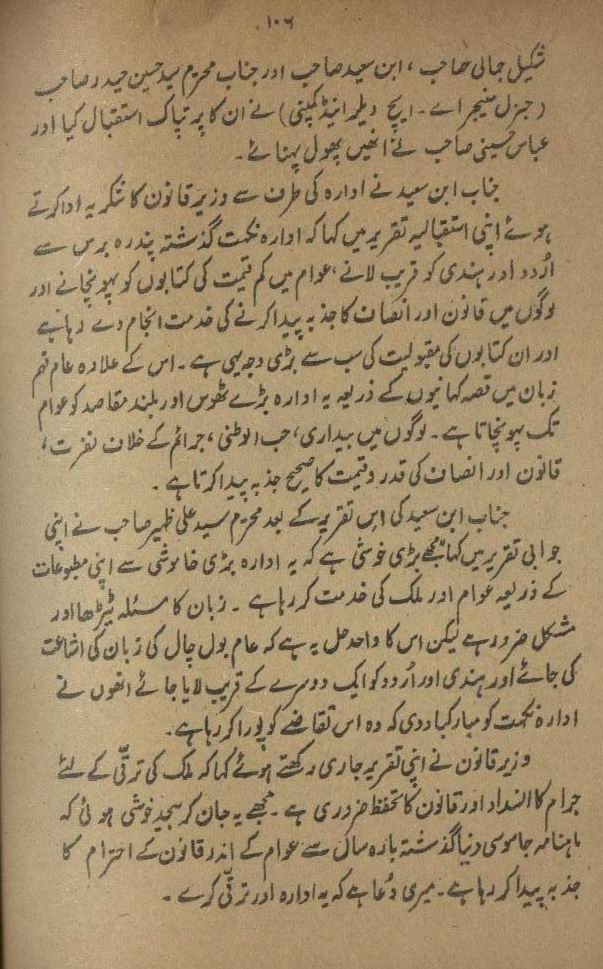 ۱۰۶
شکیل جمالی صاحب، ابن سعید صاحب اور جناب محترم سید حسین حیدر صاحب
(جنرل منیجر اے۔ ایچ وھیلر اینڈ کمپنی) نے ان کا پر تپاک استقبال کیا اور
عباس حسینی صاحب نے انھیں پھول پہنائے۔
جناب ابن سعید نے ادارہ کی طرف سے وزیر قانون کا شکریہ ادا کرتے
ہوئے اپنی استقبالیہ تقریر میں کہا کہ ادارہ نکہت گذشتہ پندرہ برس سے
اُردو اور ہندی کو قریب لانے، عوام میں کم قیمت کی کتابوں کو پہونچانے اور
لوگوں میں قانون اور انصاف کا جذبہ پیدا کرنے کی خدمت انجام دے رہا ہے
اور ان کتابوں کی مقبولیت کی سب سے بڑی وجہ یہی ہے۔ اس کے علاوہ عام فہم
زبان میں قصہ کہانیوں کے ذریعہ یہ ادارہ بڑے ٹھوس اور بلند مقاصد کو عوام
تک پہونچاتا ہے۔ لوگوں میں بیداری، حب الوطنی، جرائم کے خلاف نفرت،
قانون اور انصاف کی قدر و قیمت کا صحیح جذبہ پیدا کرتا ہے۔
جناب ابن سعید کی اس تقریر کے بعد محترم سید علی ظہیر صاحب نے اپنی
جوابی تقریر میں کہا مجھے بڑی خوشی ہے کہ یہ ادارہ بڑی خاموشی سے اپنی مطبوعات
کے ذریعہ عوام اور ملک کی خدمت کر رہا ہے۔ زبان کا مسئلہ ٹیڑھا اور
مشکل ضرور ہے لیکن اس کا واحد حل یہ ہے کہ عام بول چال کی زبان کی اشاعت
کی جائے اور ہندی اور اُردو کو ایک دوسرے کے قریب لایا جائے انھوں نے
ادارہ نکہت کو مبارکباد دی کہ وہ اس تقاضے کو پورا کر رہا ہے۔
وزیر قانون نے اپنی تقریر جاری رکھتے ہوئے کہا کہ ملک کی ترقی کے لئے
جرائم کا انسداد اور قانون کا تحفظ ضروری ہے۔ مجھے یہ جان کر بیحد خوشی ہوئی کہ
ماہنامہ جاسوسی دنیا گذشتہ بارہ سال سے عوام کے اندر قانون کے احترام کا
جذبہ پیدا کر رہا ہے۔ میری دُعا ہے کہ یہ ادارہ اور ترقی کرے۔